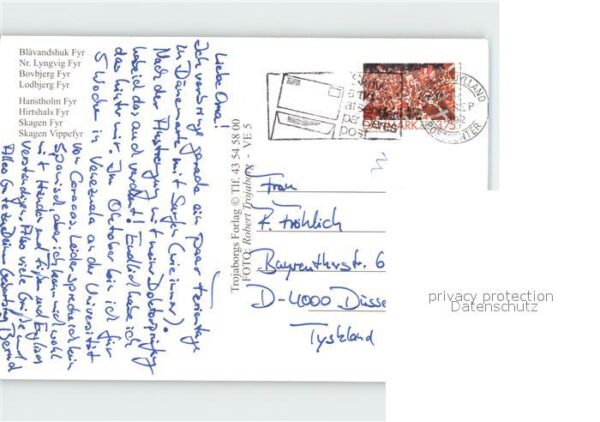 Blåvandshuk Fyr
Nr. Lyngvig Fyr
Bovbjerg Fyr
Lodbjerg Fyr
Hanstholm Fyr
Hirtshals Fyr
Skagen Fyr
Skagen Vippefyr
Liebe Oma!
Ich verbringe gerade ein paar Ferientage
in Dänemark mit Segeln (wie immer).
Nach der Anstrengung mit meiner Doktorprüfung
habe ich das auch verdient! Endlich habe ich
das hinter mir. Im Oktober bin ich für
5 Wochen in Venezuela an der Universität
von Caracas. Leider spreche ich kein
Spanisch, aber ich kann mich wohl
mit Händen und Füßen und Englisch
verständigen. Also viele Grüße und
Alles Gute zu Deinem Geburtstag Bernd
Trojaborgs Forlag © Tlf. 43 54 58 00
FOTO: Robert Trojaborg - VE 5
at sende
pr.
post
ARK 375
JYLLAND
SEP
POSTCENTER
Frau
F. Fröhlich
Bayreuther str. 6
D-4000 Düsse
Tyskland
privacy protection
Datenschutz